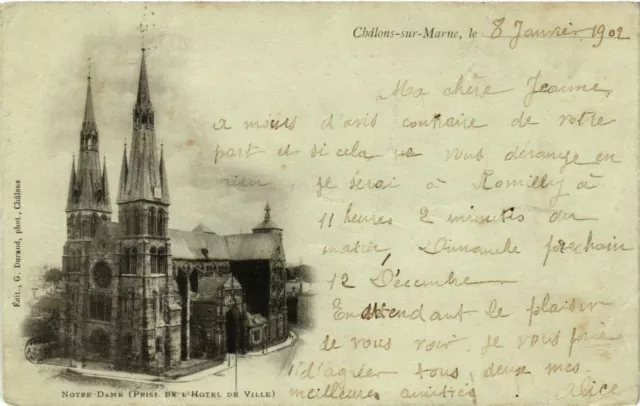 Châlons-sur-Marne, le 8 Janvier 1902
Ma chère Jeanne,
a moins d'avis contraire de votre
part et si cela ne vous dérange en
rien, je serai à Romilly à
11 heures 2 minutes du
matin, Dimanche prochain
12 Décembre.
En attendant le plaisir
de vous voir je vous prie
d'agréer tous deux mes
meilleures amitiés. Alice
Édit., G. Durand, phot., Châlons
Notre-Dame (Prise de l'Hotel de Ville)